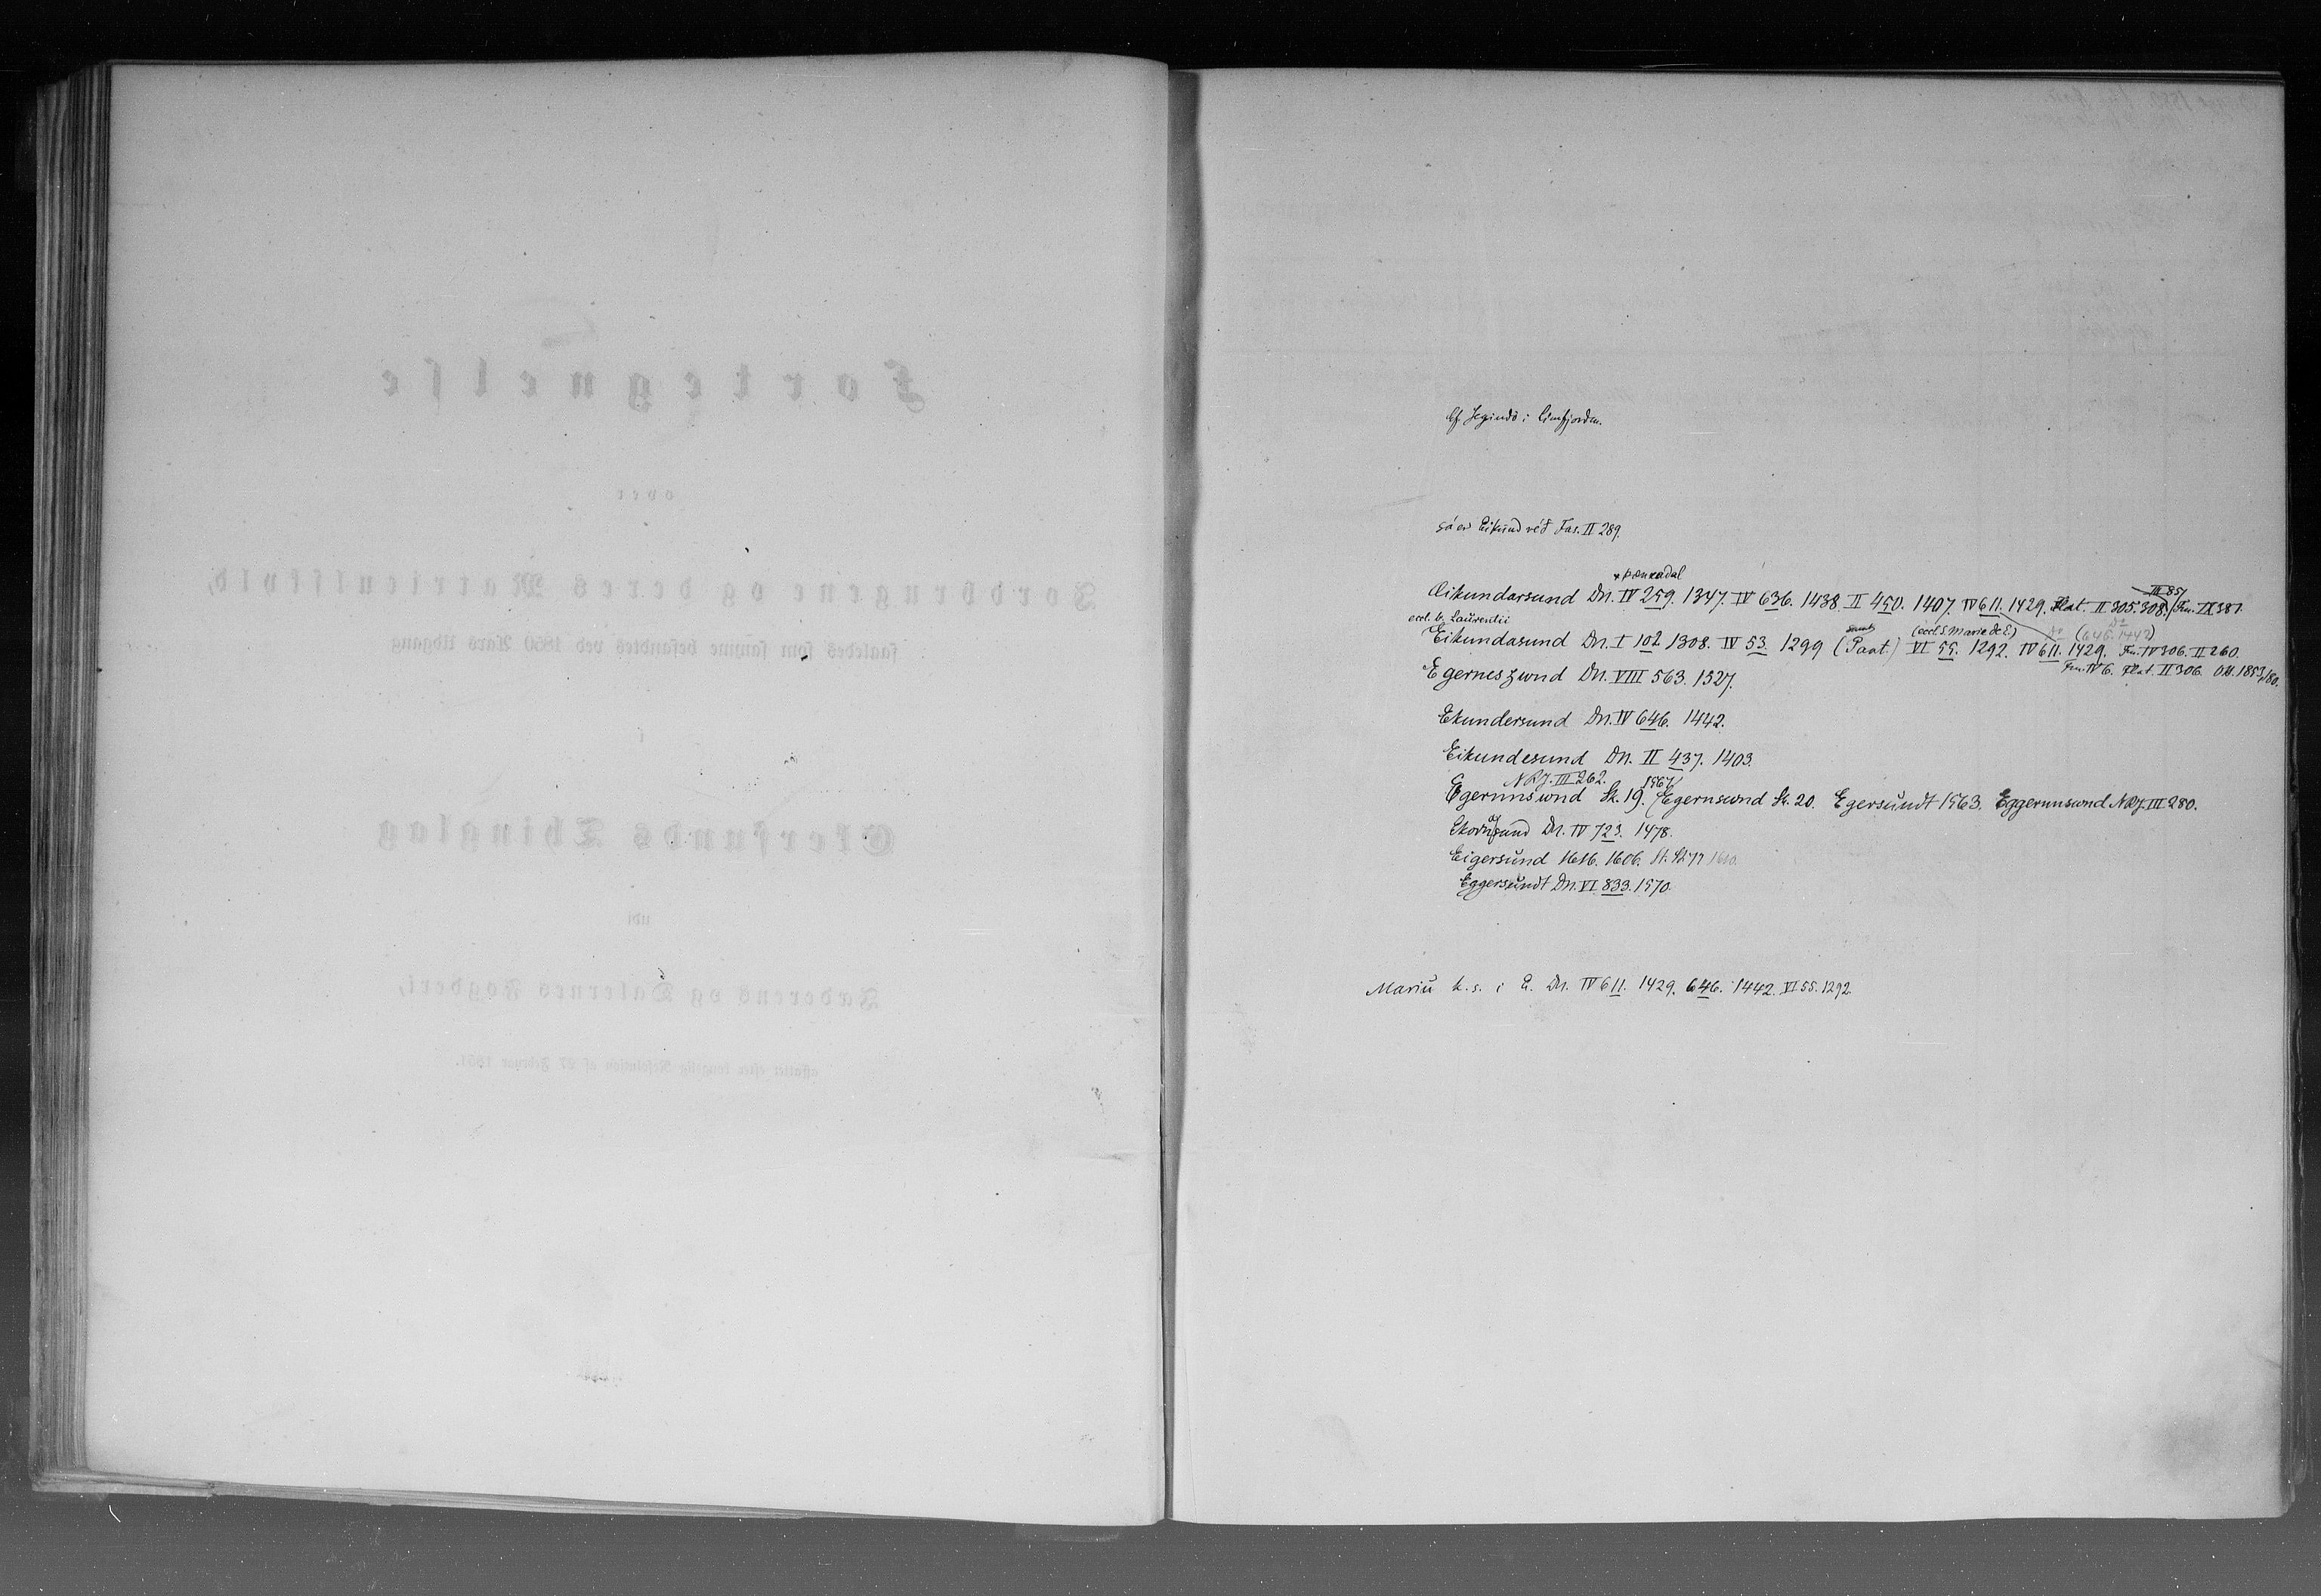 Fortegnelse
over
Jordbrugene og deres Matriculskyld,
saaledes som samme befandtes ved 1850 Aars Udgang
i
Ekersunds Thinglag
udi
Jæderens og Dalernes Fogderi,
affattet efter kongelig Resolution af 27 Februar 1851.
Cf. Jegindö i Limfjorden.
sá er Eikund réd Fas. II 289.
+ Þonradal
III 85
Eikundarsund Dn. IV 259. 1347. IV 636. 1438. II 450. 1407. IV 611. 1429. Flat. II 305. 308. Fm. IX 381.
eccl. b. Laurentii
(eccl. S. Marie de E.) Do (646. 1442)
Eikundasund Dn. I 102 1308. IV 53. 1299 (Paat.) VI 55. 1292. IV 611. 1429. Fm. IV 306. II 260.
Fm. IV 6. Flat. II 306. OH. 1853, 180.
Egerneszwnd Dn. VIII 563. 1327.
Ekundersund Dn. IV 646. 1442.
Eikundesund Dn. II 437. 1403.
NRJ. III 262. 1567
Egernnswnd Sk. 19. Egernswnd Sk. 20. Egersundt 1563. Eggernnswnd NRJ. III 280.
sund Dn. IV 723. 1478.
Eigersund 1616. 1606. 1610.
Eggersundt Dn. VI 833. 1570.
Mariu k. s. i E. Dn. IV 611. 1429. 646. 1442. VI 55. 1292.